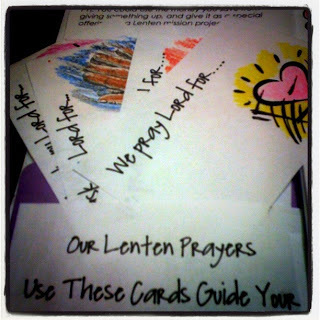 giving something up, and give it as a special
offering
a Lenten mission
I for...
We pray Lord for....
Lord for...
Lord for...
Our Lenten Prayers
Use These Cards Guide Your